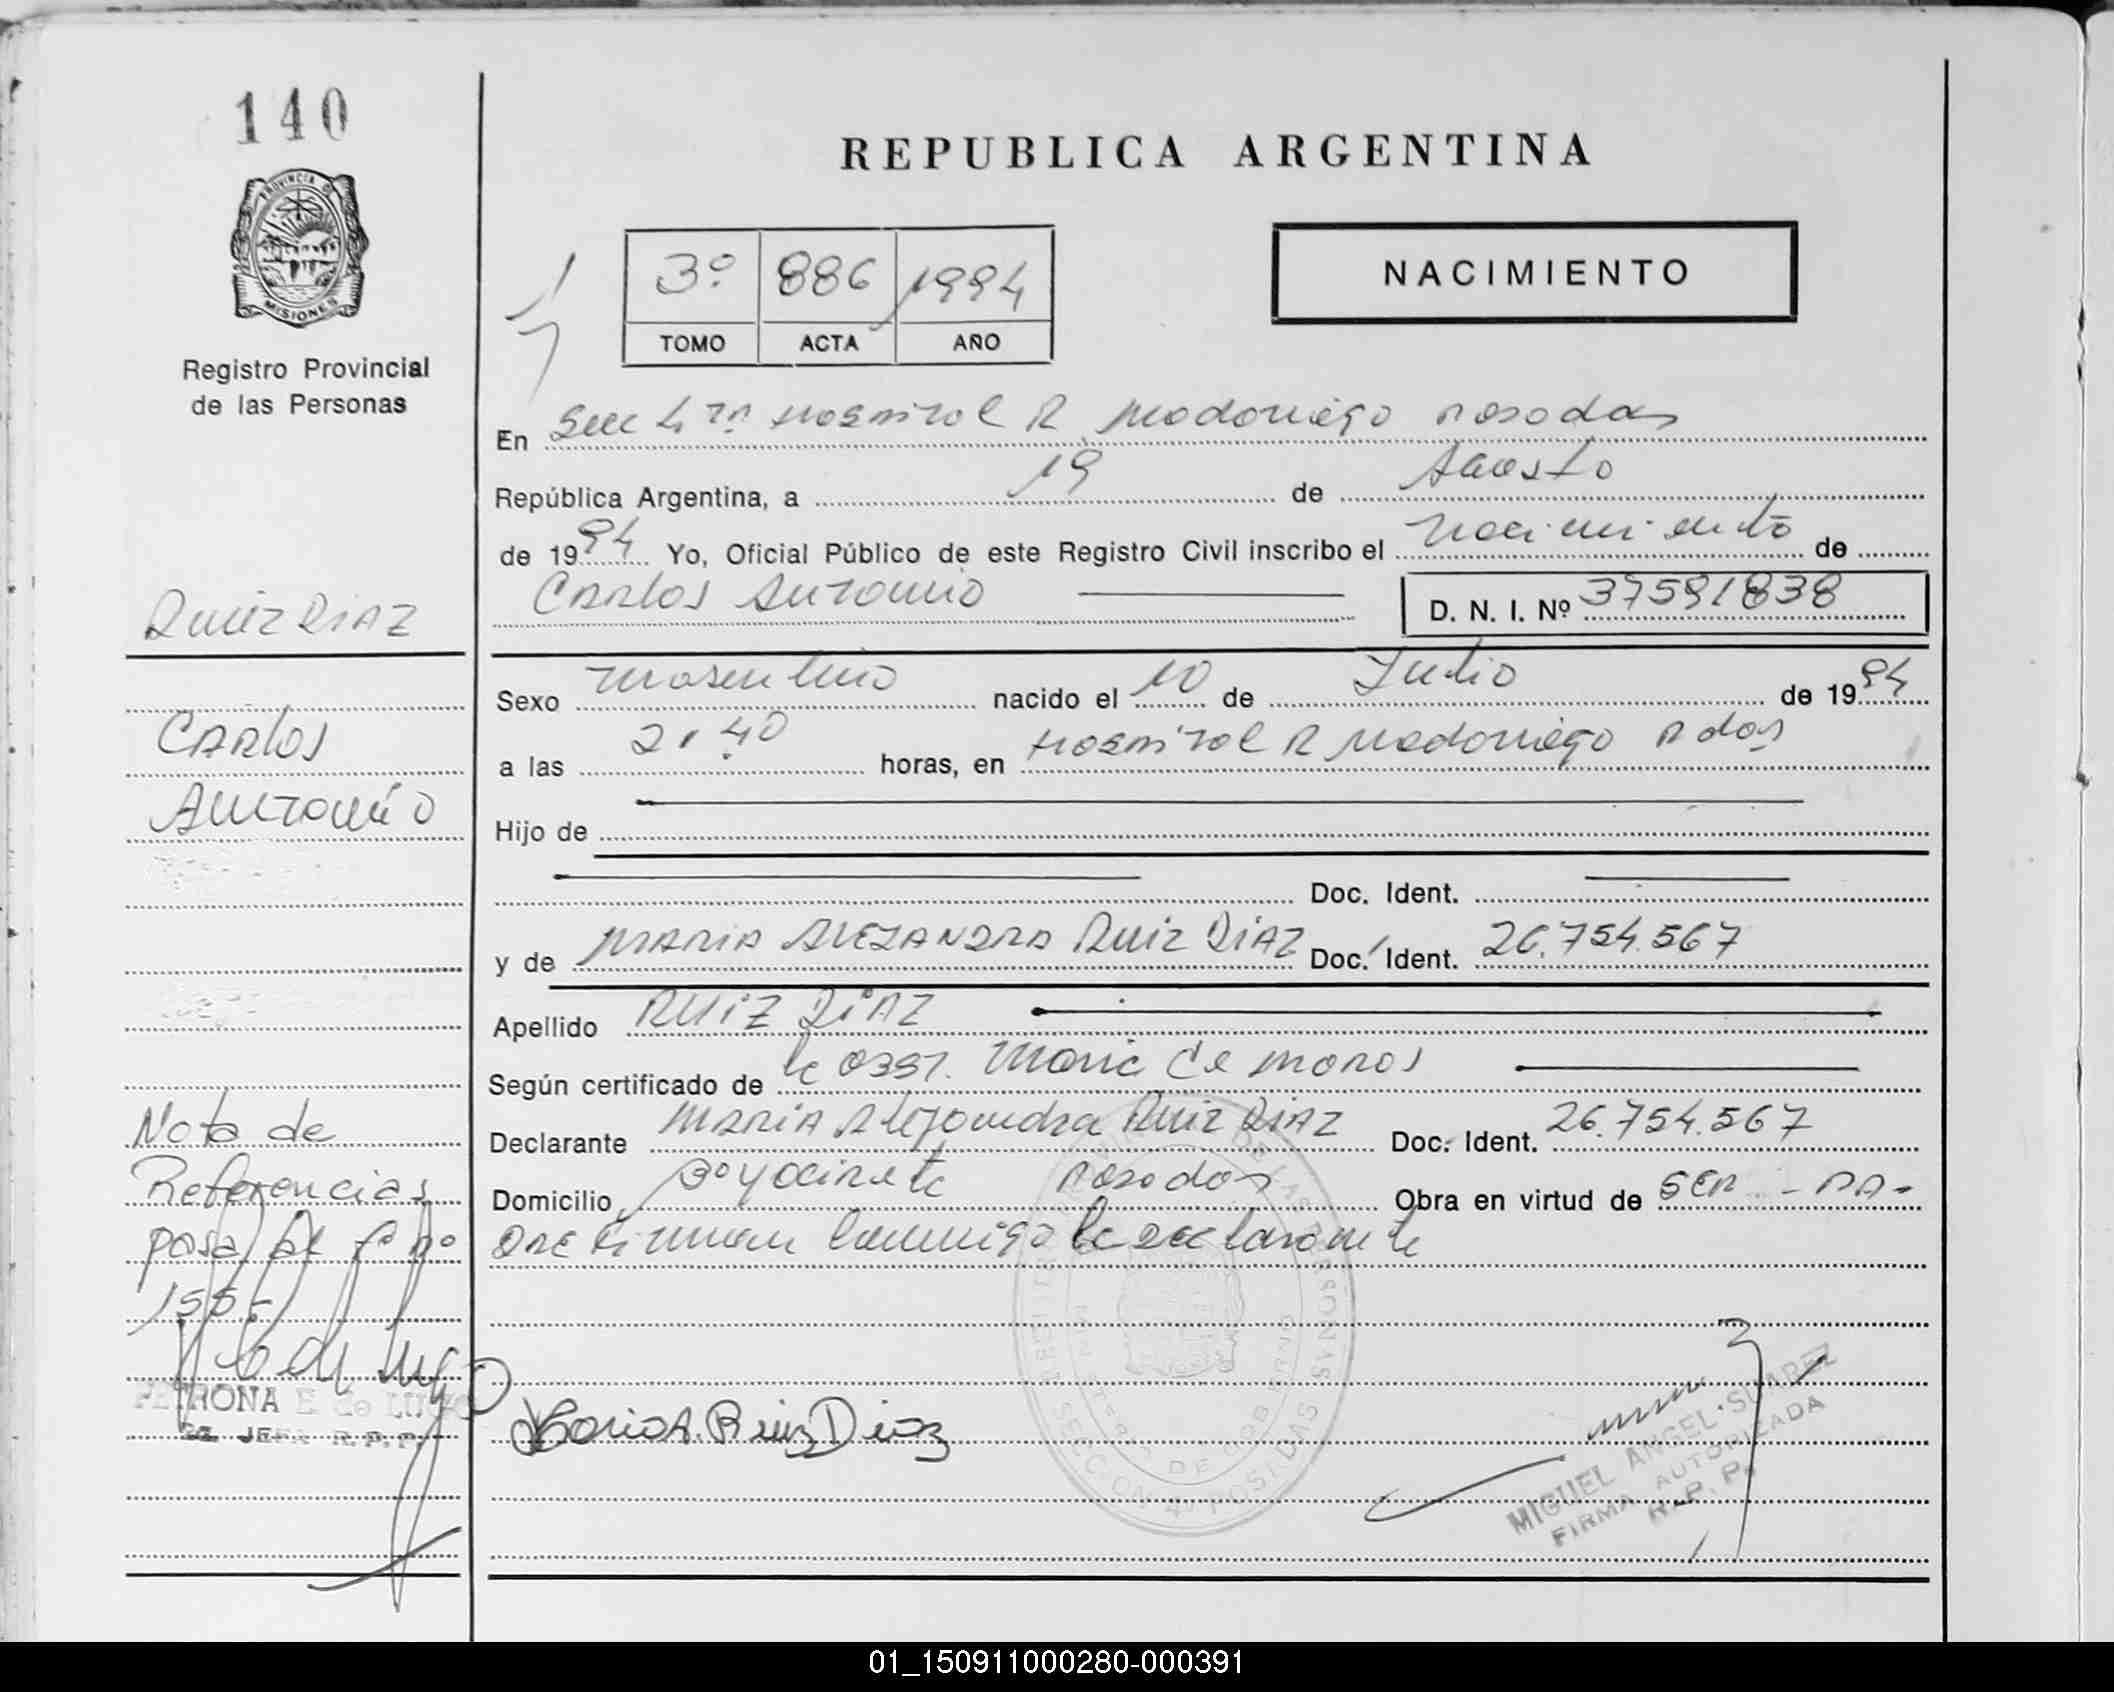 140
REPUBLICA ARGENTINA
PROVINCIA D
MISIONES
3º 886 1994
TOMO ACTA AÑO
NACIMIENTO
Registro Provincial
de las Personas
En Secc 4ta Hospital R Madariaga Posadas
República Argentina, a 19 de Agosto
de 1994 Yo, Oficial Público de este Registro Civil inscribo el Nacimiento de
Carlos Antonio D. N. I. Nº 37591838
Ruiz Diaz
Carlos
Antonio
Sexo masculino nacido el 10 de Julio de 1994
a las 21.40 horas, en Hospital R Madariaga Pdas
Hijo de
Doc. Ident.
y de Maria Alejandra Ruiz Diaz Doc. Ident. 26.754.567
Apellido RUIZ DIAZ
Según certificado de la Obst. Maria de
Declarante Maria Alejandra Ruiz Diaz Doc. Ident. 26.754.567
Domicilio Bº Yacireta Posadas Obra en virtud de SER - PA-
DRE Firman conmigo la declarante
Nota de
Referencias
pasa al fº nº
155.-
PETRONA E de LUGO
JEFA R.P.P.
Maria A. Ruiz Diaz
REGISTRO PROVINCIAL DE LAS PERSONAS
MINISTERIO DE GOBIERNO
SECCION 4ª POSADAS
MIGUEL ANGEL SUAREZ
FIRMA AUTORIZADA
R.P.P.
01_150911000280-000391